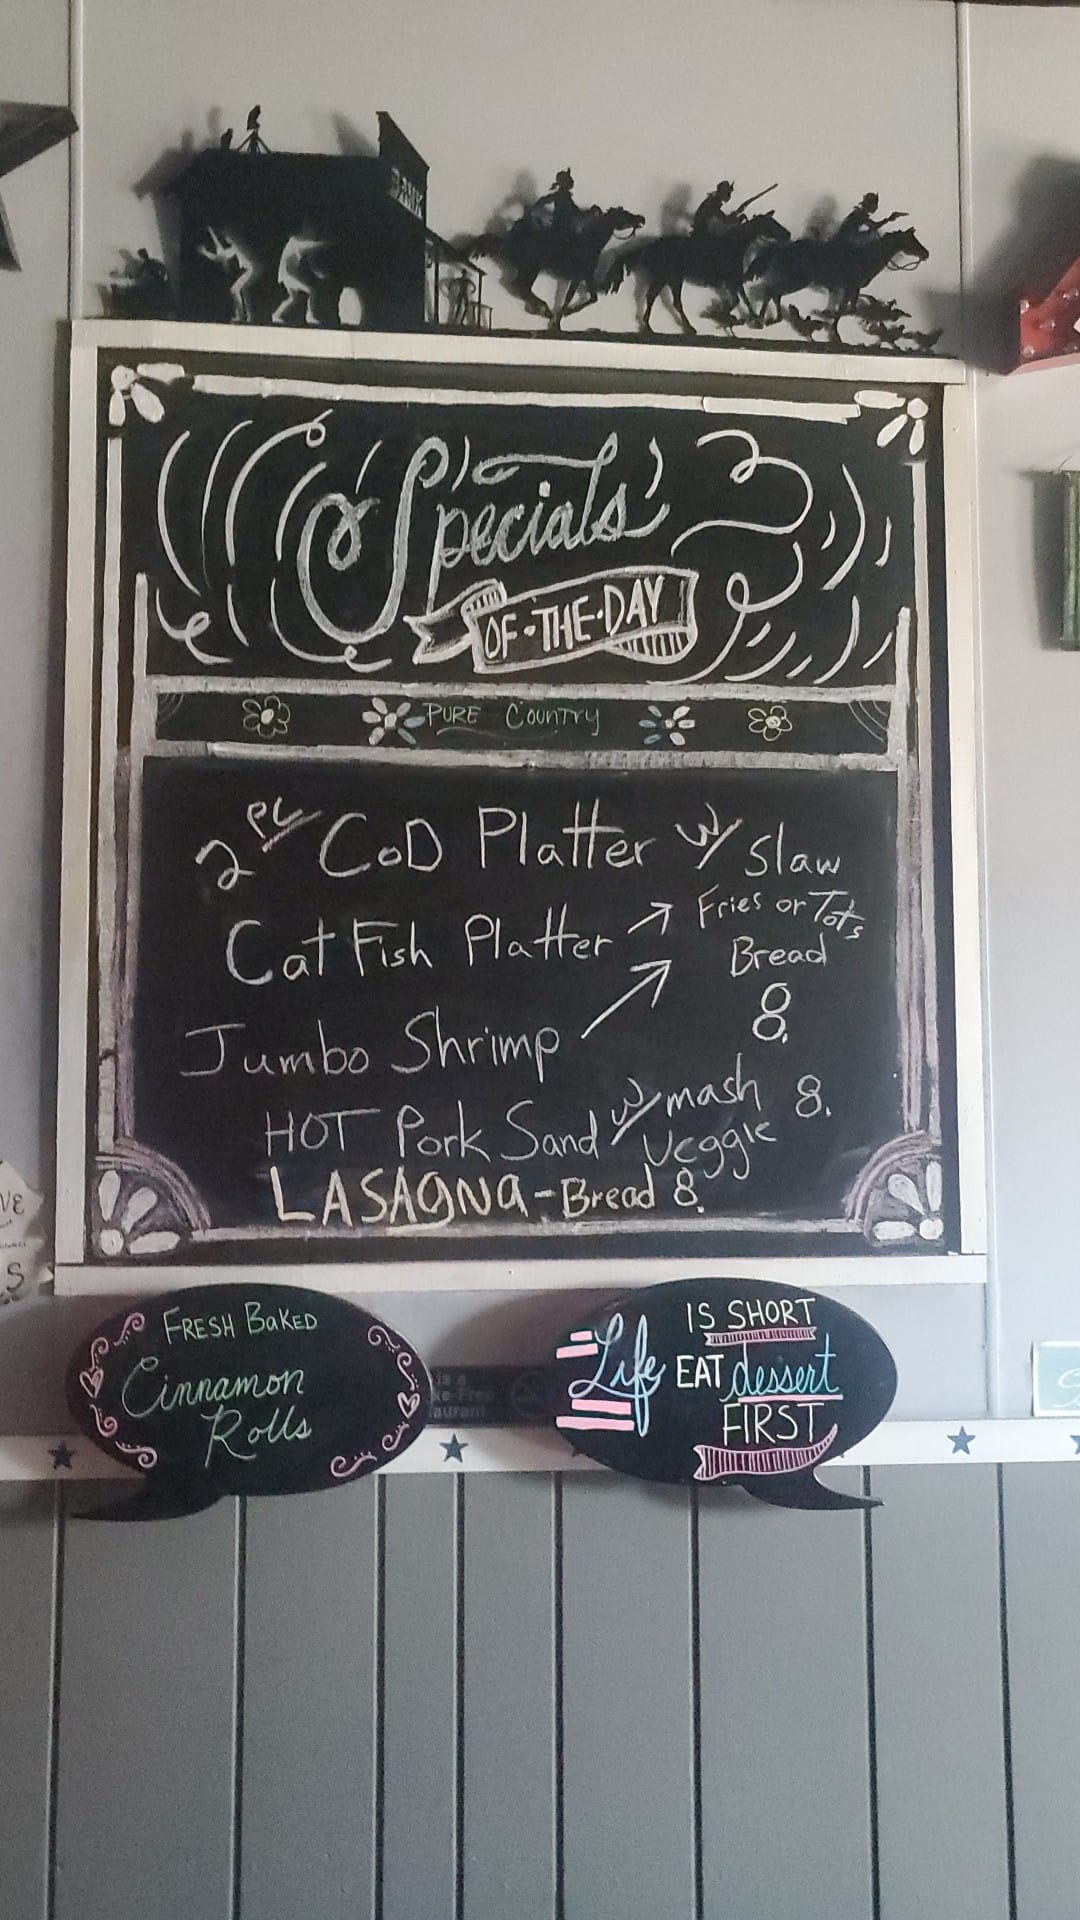 BANK
Specials
OF·THE·DAY
PURE COUNTRY
2 PC COD Platter w/ Slaw
Fries or Tots
Cat Fish Platter
Bread
8.
Jumbo Shrimp
HOT Pork Sand w/ mash 8.
Veggie
LASAGNA - Bread 8.
FRESH BAKED
Cinnamon
Rolls
Life IS SHORT
EAT dessert
FIRST
is a